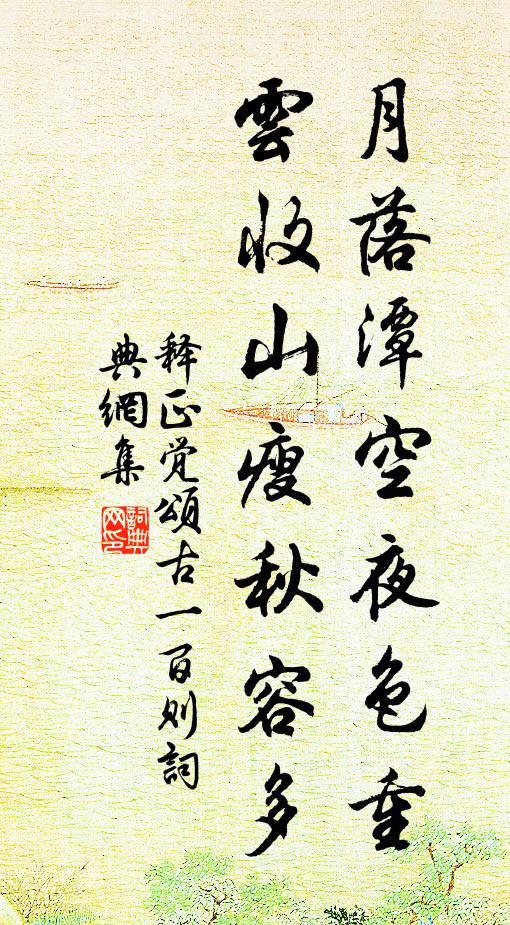 月落潭空夜色重
雲收山瘦秋容多
释正觉頌古一百则詞
典網集
詞典
网印